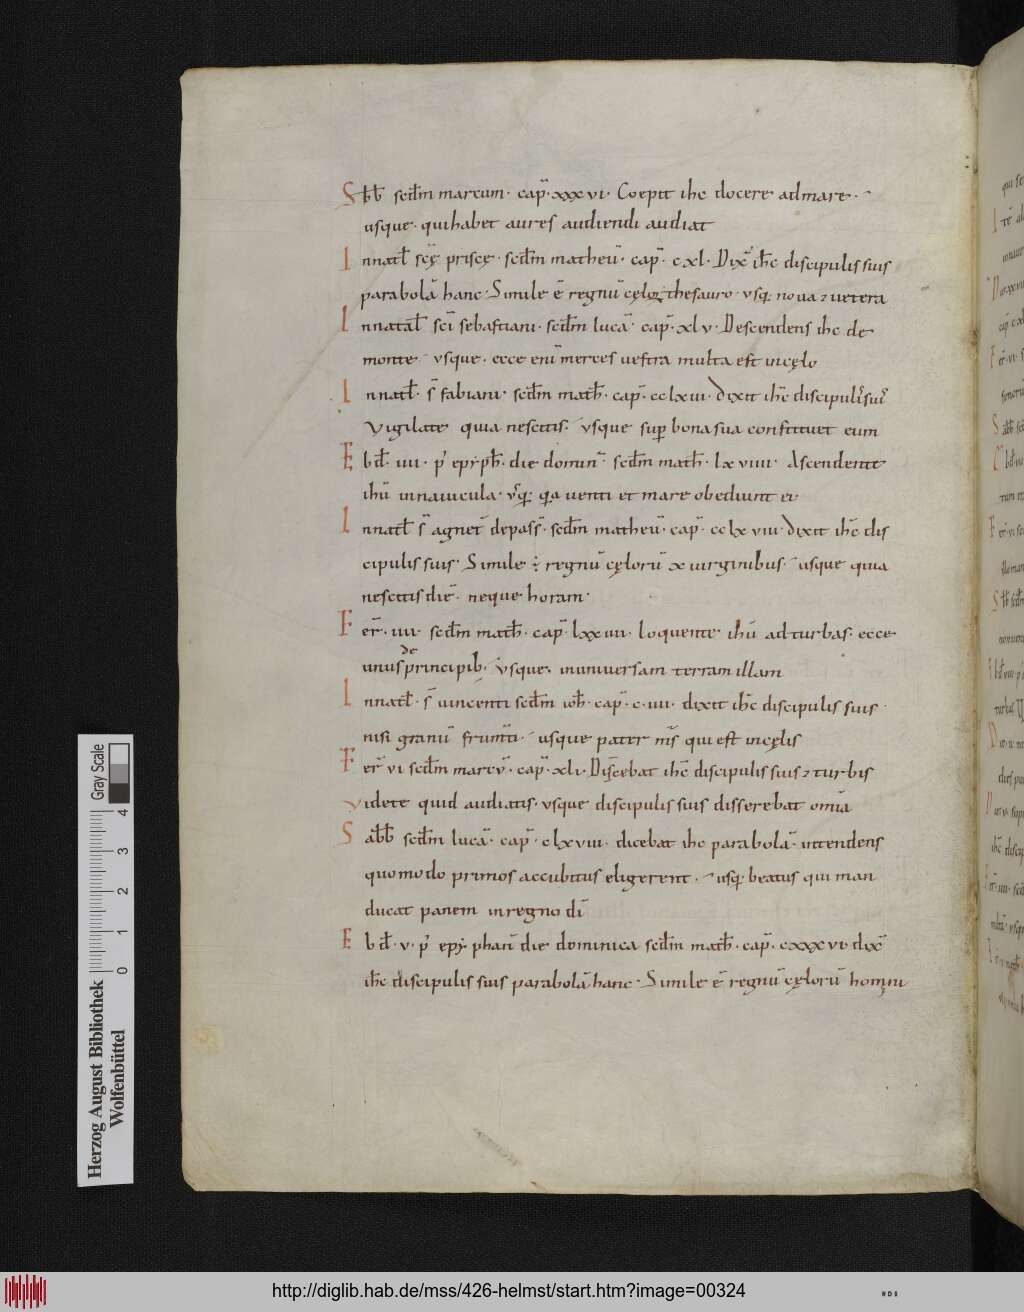 Sbb̄ scd̄m marcum· cap̄· xxxvi· Coepit ihc docere ad mare·
usque· qui habet aures audiendi audiat
In natł sc̄ę priscę· scd̄m matheū· cap̄· cxl· Dix̄ ihc̄ discipulis suis
parabolā hanc· Simile ē regnū cęloꝝ thesauro· usq; noua ⁊ uetera
In natał sc̄i sebastiani· scd̄m lucā· cap̄· xlv· Descendens ihc de
monte· usque· ecce eni̅ merces uestra multa est in cęlo
In natł· s̄ fabiani· scd̄m math̄· cap̄· cclxiii· dixit ihc̄ discipulis sui
Vigilate quia nescitis· usque sup̄ bona sua constituet eum
Ebd̄· iiii· p̄ epyph̄· die domin̄· scd̄m math̄· lxviiii· Ascendente
ihū in nauicula· usq; q̄a uenti et mare obediunt ei
In natł s̄ agnet̄ de pass̄· scd̄m matheū· cap̄· cclxviii· dixit ihc̄ dis
cipulis suis· Simile ÷ regnū cęlorū x uirginibus· usque quia
nescitis diē· neque horam·
Fer̄· iiii· scd̄m math̄· cap̄· lxxiiii· loquente ihū ad turbas· ecce
de
unus principib· usque· in uniuersam terram illam
In natł· s̄ uincenti scd̄m ioh̄· cap̄· c·iiii· dixit ihc̄ discipulis suis·
nisi granū frum̄ti· usque pater nr̄s qui est in cęlis
Fer̄ vi scd̄m marcū· cap̄· xli· Discebat ihc̄ discipulis suis ⁊ turbis
Videte quid audiatis· usque discipulis suis disserebat omīa
Sabb̄ scd̄m lucā· cap̄· clxviii· dicebat ihc parabolā· intendens
quomodo primos accubitus eligerent· usq; beatus qui man
ducat panem in regno dī
Ebd̄· v· p̄ epyphan̄ die dominica scd̄m math̄· cap̄· cxxxvi· dix̄
ihc̄ discipulis suis parabolā hanc· Simile ē regnū cęlorū homini
Herzog August Bibliothek
Wolfenbüttel
0 1 2 3 4
Gray Scale
http://diglib.hab.de/mss/426-helmst/start.htm?image=00324